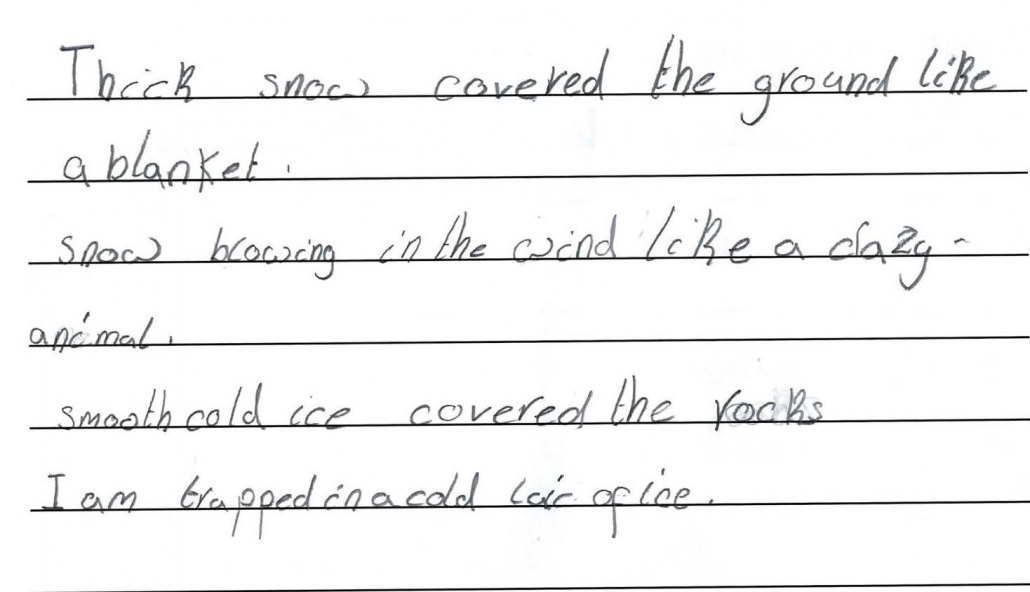 Thick snow covered the ground like
a blanket.
snow blowing in the wind like a crazy-
animal.
smooth cold ice covered the rocks
I am trapped in a cold lair of ice.